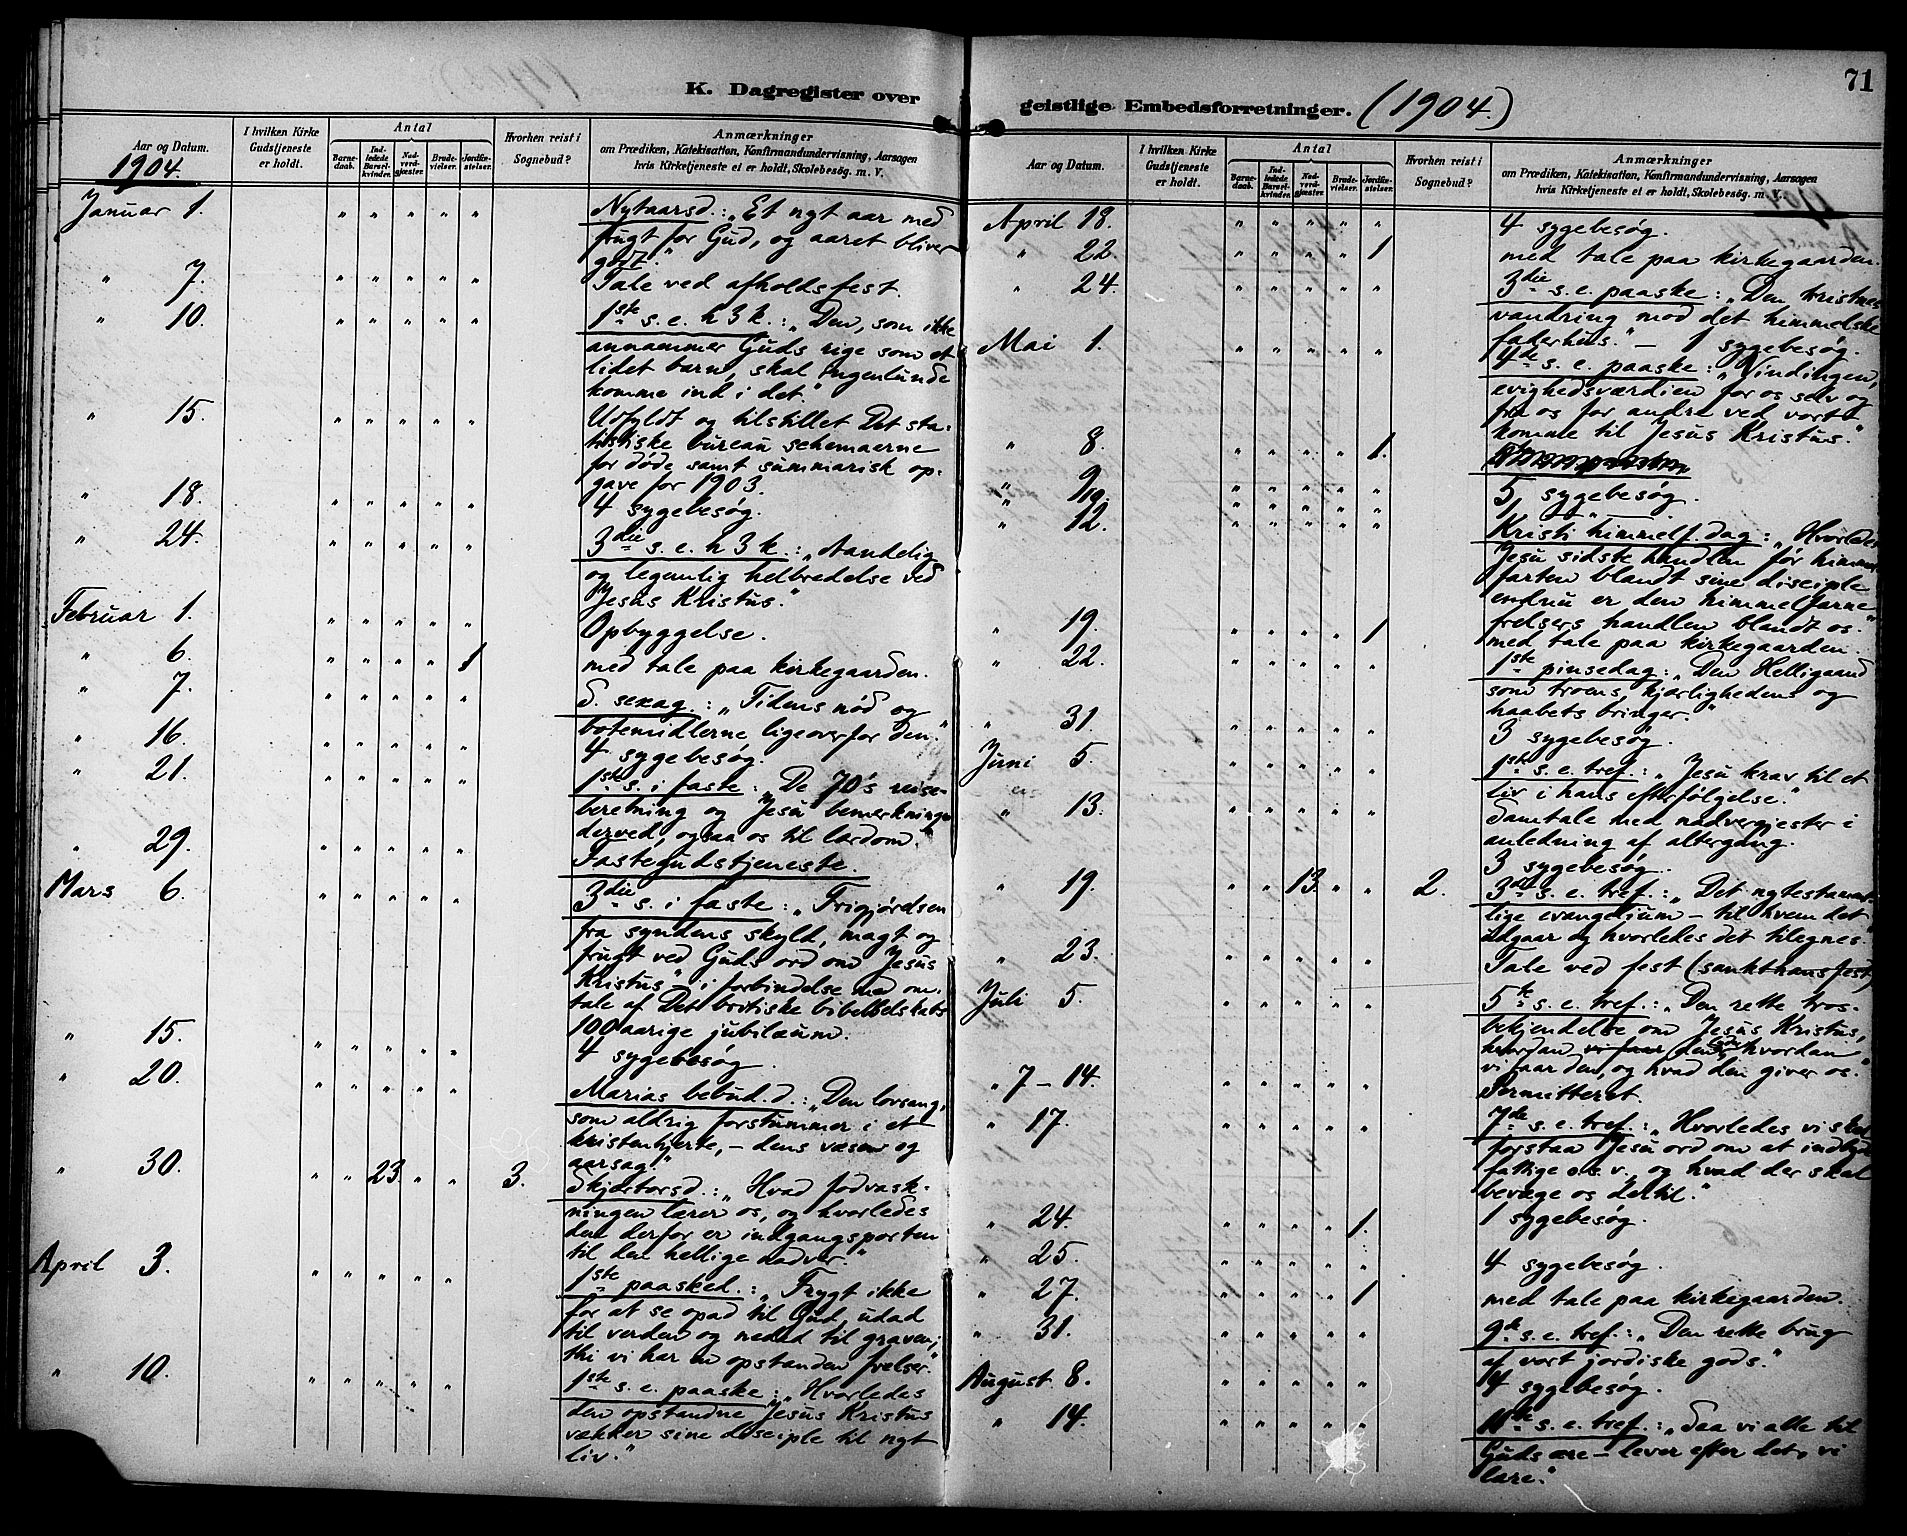 71
K. Dagregister over
geistlige Embedsforretninger. (1904.)
Aar og Datum.
I hvilken Kirke Gudstjeneste er holdt.
Antal
Barnedaab.
Indledede Barselkvinder.
Nadverdgjæster.
Brudevielser.
Jordfæstelser.
Hvorhen reist i Sognebud?
Anmærkninger
om Prædiken, Katekisation, Konfirmandundervisning, Aarsagen
hvis Kirketjeneste et er holdt, Skolebesøg. m. V.
1904.
Januar 1. " " " " " Nytaarsd.: „Et nyt aar med
frugt for Gud, og aaret bliver
godt."
" 7. " " " " " Tale ved afholdsfest.
" 10. " " " " " 1ste s. e. h 3 k.: „Den, som ikke
annammer Guds rige som et
lidet barn, skal ingenlunde
komme ind i det."
" 15. " " " " " Udfyldt og tilstillet Det sta-
tistiske bureau schemaerne
for døde samt summarisk op-
gave for 1903.
" 18. " " " " " 4 sygebesøg.
" 24. " " " " " 3die s. e. h 3 k.: „Aandelig
og legemlig helbredelse ved
Jesus Kristus."
Februar 1. " " " " " Opbyggelse.
" 6. " " " " 1 med tale paa kirkegaarden.
" 7. " " " " " S. sexag.: „Tidens nød og
botemidlerne ligeoverfor den."
" 16. " " " " " 4 sygebesøg.
" 21. " " " " " 1ste s. i faste: „De 70's reise-
beretning og Jesu bemerkninger
derved, ogsaa os til lærdom."
" 29. " " " " " Fastegudstjeneste.
Mars 6. " " " " " 3die s. i faste: „Frigjørelsen
fra syndens skyld, magt og
frugt ved Guds ord om Jesus
Kristus" i forbindelse med om-
tale af Det britiske bibelselskabs
100aarige jubilæum.
" 15. " " " " " 4 sygebesøg.
" 20. " " " " " Marias bebud. d.: „Den lovsang,
som aldrig forstummer i et
kristenhjerte, – dens væsen og
aarsag."
" 30. " " 23. " " 3. Skjærtorsd.: „Hvad fodvask-
ningen lærer os, og hvorledes
den derfor er indgangsporten
til den hellige nadver."
April 3. " " " " " 1ste paasked.: „Frygt ikke
for at se opad til Gud, udad
til verden og nedad til graven;
thi vi har en opstanden frelser."
" 10. " " " " " 1ste s. e. paaske: „Hvorledes
den opstandne Jesus Kristus
vækker sine disciple til nyt
liv."
Aar og Datum.
I hvilken Kirke Gudstjeneste er holdt.
Antal
Barnedaab.
Indledede Barselkvinder.
Nadverdgjæster.
Brudevielser.
Jordfæstelser.
Hvorhen reist i Sognebud?
Anmærkninger
om Prædiken, Katekisation, Konfirmandundervisning, Aarsagen
hvis Kirketjeneste et er holdt, Skolebesøg. m.
April 18. " " " " " 4 sygebesøg.
" 22. " " " " 1 med tale paa kirkegaarden.
" 24. " " " " " 3die s. e. paaske: „Den kristnes
vandring mod det himmelske
faderhus." – 1 sygebesøg.
Mai 1. " " " " " 4de s. e. paaske: „Vindingen,
evighedsværdien for os selv og
fra os for andre ved vort
komme til Jesus Kristus."
" 8. " " " " 1.
" 9. " " " " " 5 sygebesøg.
" 10. " " " " " 1 "
" 12. " " " " " Kristi himmelf. dag: „Hvorledes
Jesu sidste handlen før himmel-
farten blandt sine disciple
endnu er den himmelfarne
frelsers handlen blandt os."
" 19. " " " " 1 med tale paa kirkegaarden.
" 22. " " " " " 1ste pinsedag: „Den Helligaand
som troens, kjærlighedens og
haabets bringer."
" 31. " " " " " 3 sygebesøg.
Juni 5. " " " " " 1ste s. e. tref.: „Jesu krav til et
liv i hans efterfølgelse."
" 13. " " " " " Samtale med nadvergjester i
anledning af altergang.
3 sygebesøg.
" 19. " " 13. " " 2. 3die s. e. tref.: „Det nytestament-
lige evangelium – til hvem det
udgaar og hvorledes det tilegnes."
" 23. " " " " " Tale ved fest (sankthansfest)
Juli 5. " " " " " 5te s. e. tref.: „Den rette tros-
bekjendelse om Jesus Kristus,
hvordan vi faar den hvordan
vi faar den, og hvad den giver os."
" 7–14. " " " " " Permitteret.
" 17. " " " " " 7de s. e. tref.: „Hvorledes vi skal
forstaa Jesu ord om at indbyde
fattige o.s.v., og hvad der skal
bevæge os dertil."
" 24. " " " " 1. 1 sygebesøg.
" 25. " " " " " 4 sygebesøg.
" 27. " " " " 1 med tale paa kirkegaarden.
" 31. " " " " " 9de s. e. tref.: „Den rette brug
af vort jordiske gods."
August 8. " " " " " 4 sygebesøg.
" 14. " " " " " 11te s. e. tref.: „Saa vi alle til
Guds ære – lever efter det, vi
lære."